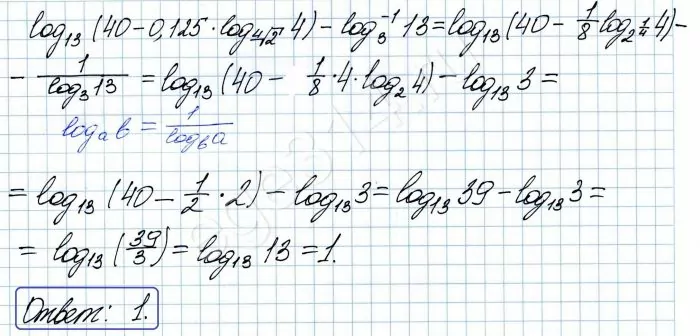 log₁₃ (40 - 0,125 · log_{⁴√2} 4) - log₃⁻¹ 13 = log₁₃ (40 - 1/8 log_{2^{1/4}} 4) -
- 1/(log₃ 13) = log₁₃ (40 - 1/8 · 4 · log₂ 4) - log₁₃ 3 =
logₐ b = 1/(log_b a)
= log₁₃ (40 - 1/2 · 2) - log₁₃ 3 = log₁₃ 39 - log₁₃ 3 =
= log₁₃ (39/3) = log₁₃ 13 = 1.
Ответ: 1.